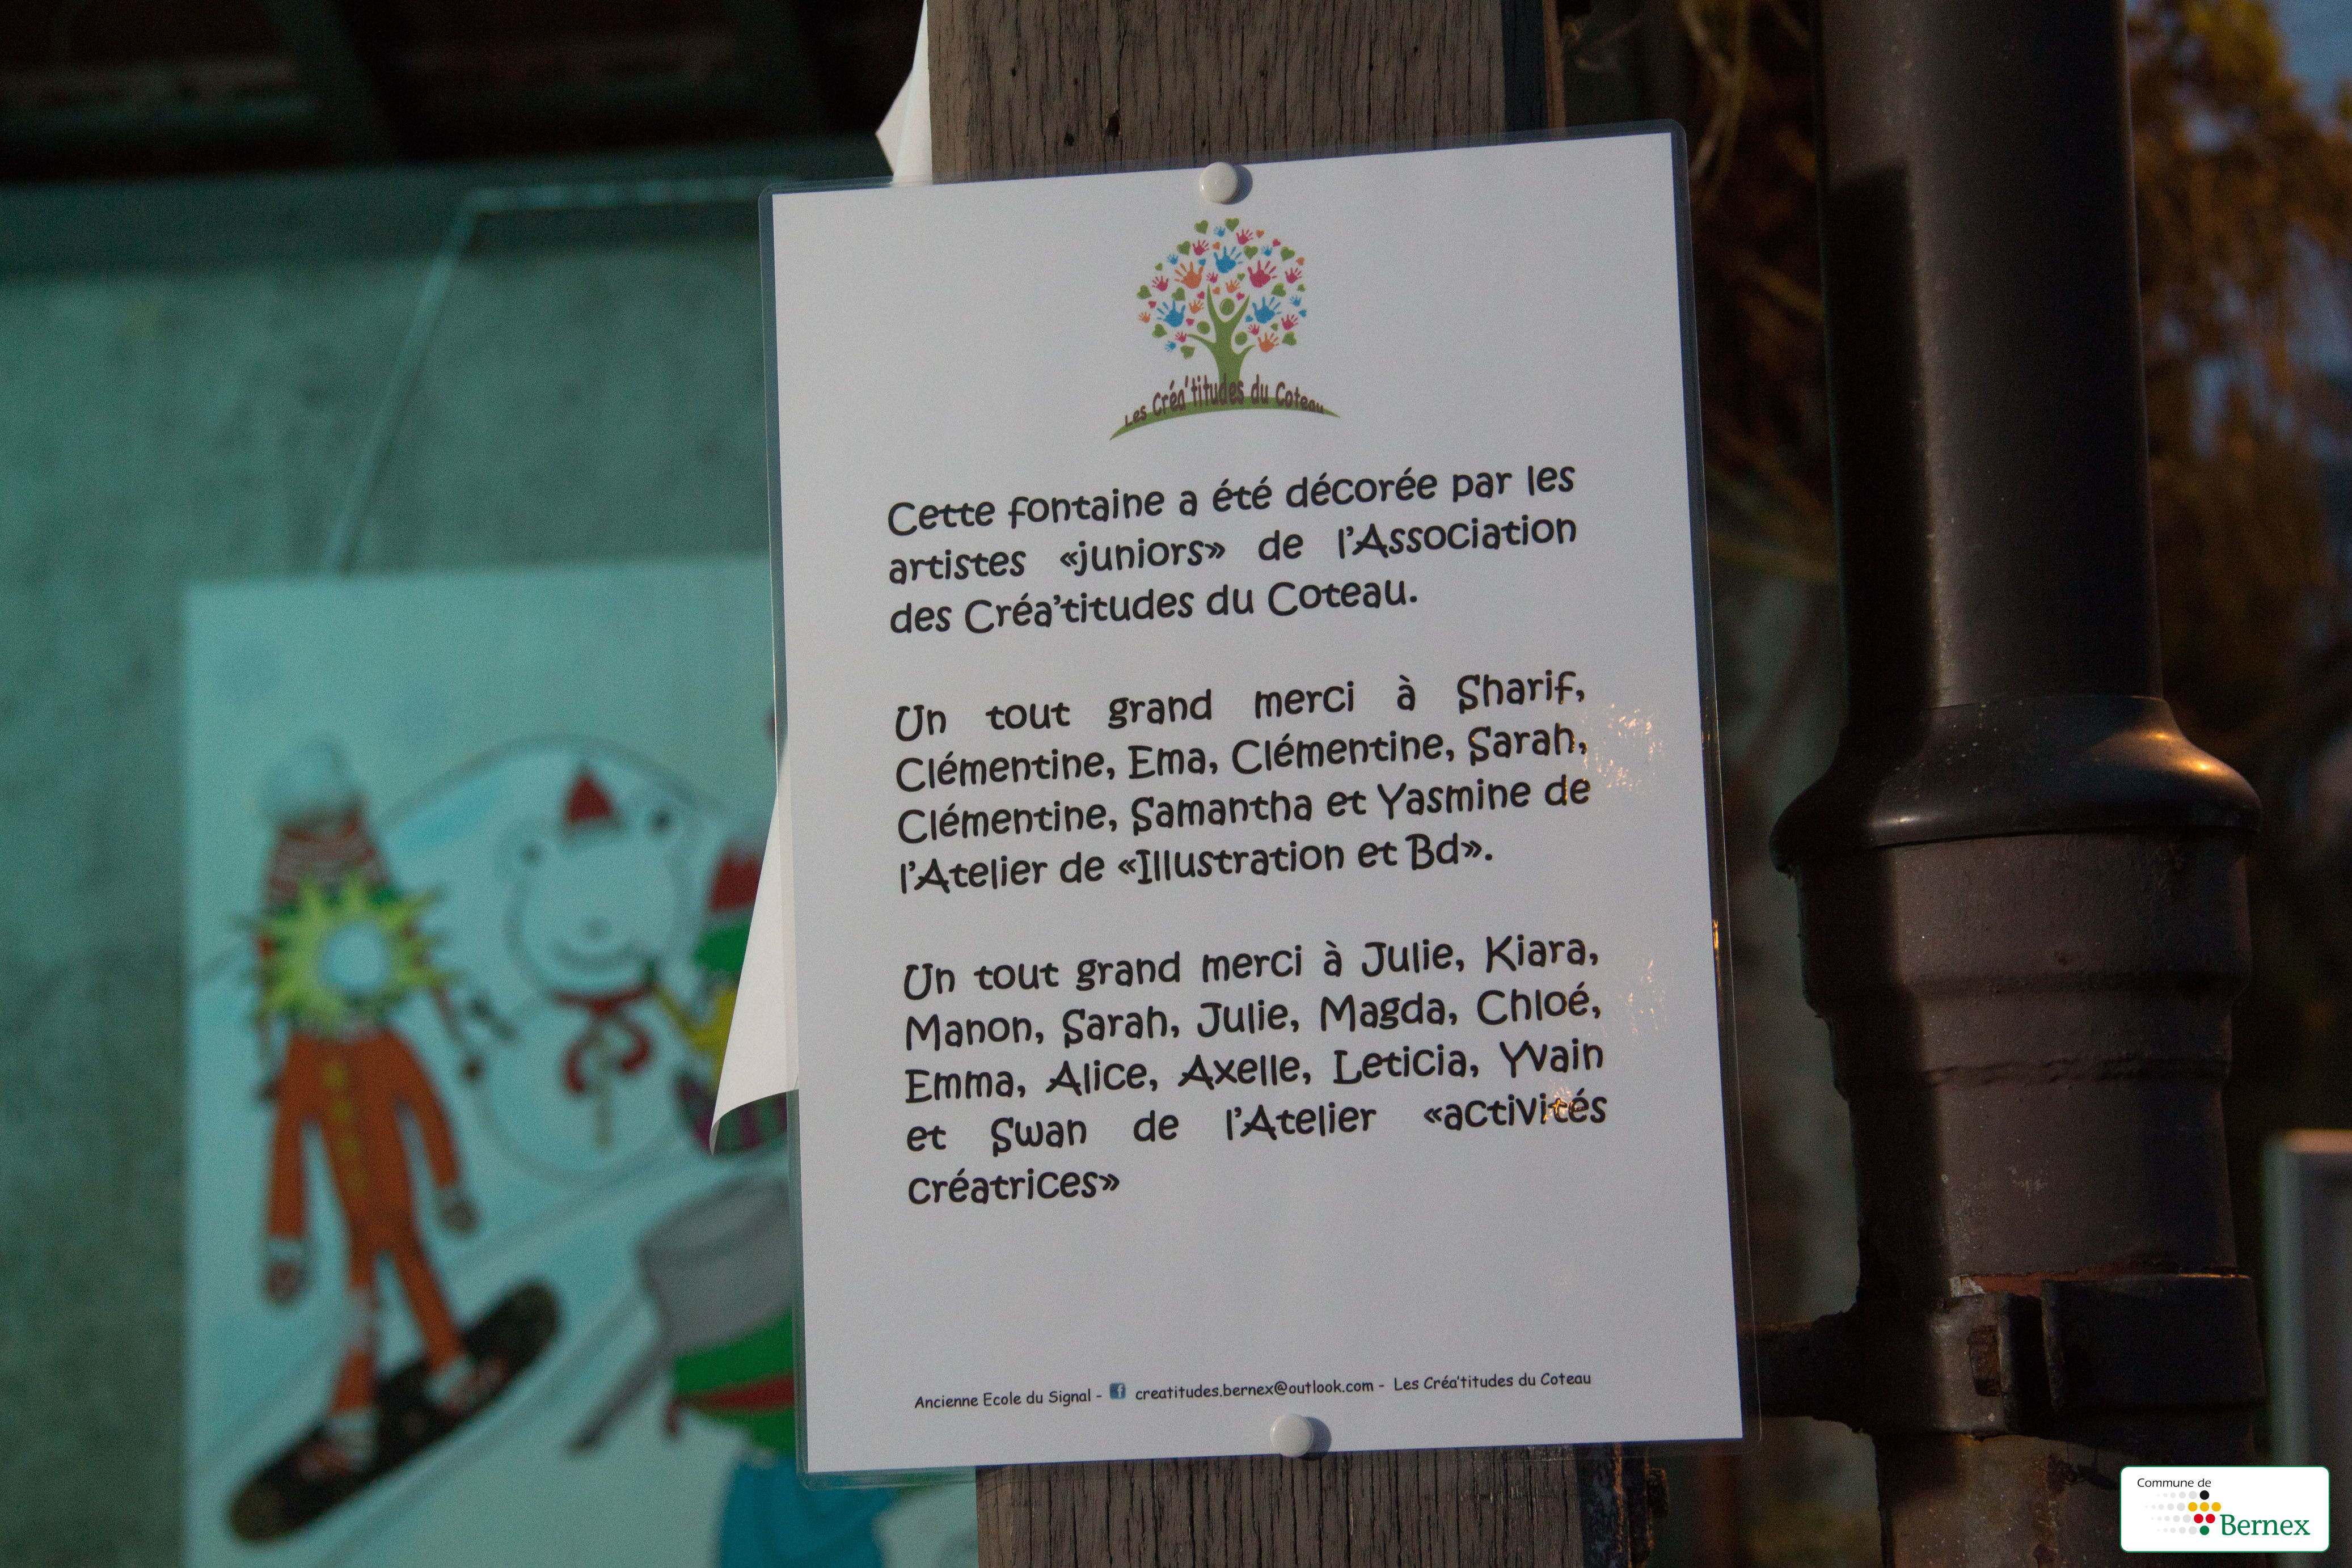 Les Créa'titudes du Coteau
Cette fontaine a été décorée par les
artistes «juniors» de l'Association
des Créa'titudes du Coteau.
Un tout grand merci à Sharif,
Clémentine, Ema, Clémentine, Sarah,
Clémentine, Samantha et Yasmine de
l'Atelier de «Illustration et Bd».
Un tout grand merci à Julie, Kiara,
Manon, Sarah, Julie, Magda, Chloé,
Emma, Alice, Axelle, Leticia, Yvain
et Swan de l'Atelier «activités
créatrices»
Ancienne Ecole du Signal - f creatitudes.bernex@outlook.com - Les Créa'titudes du Coteau
Commune de
Bernex